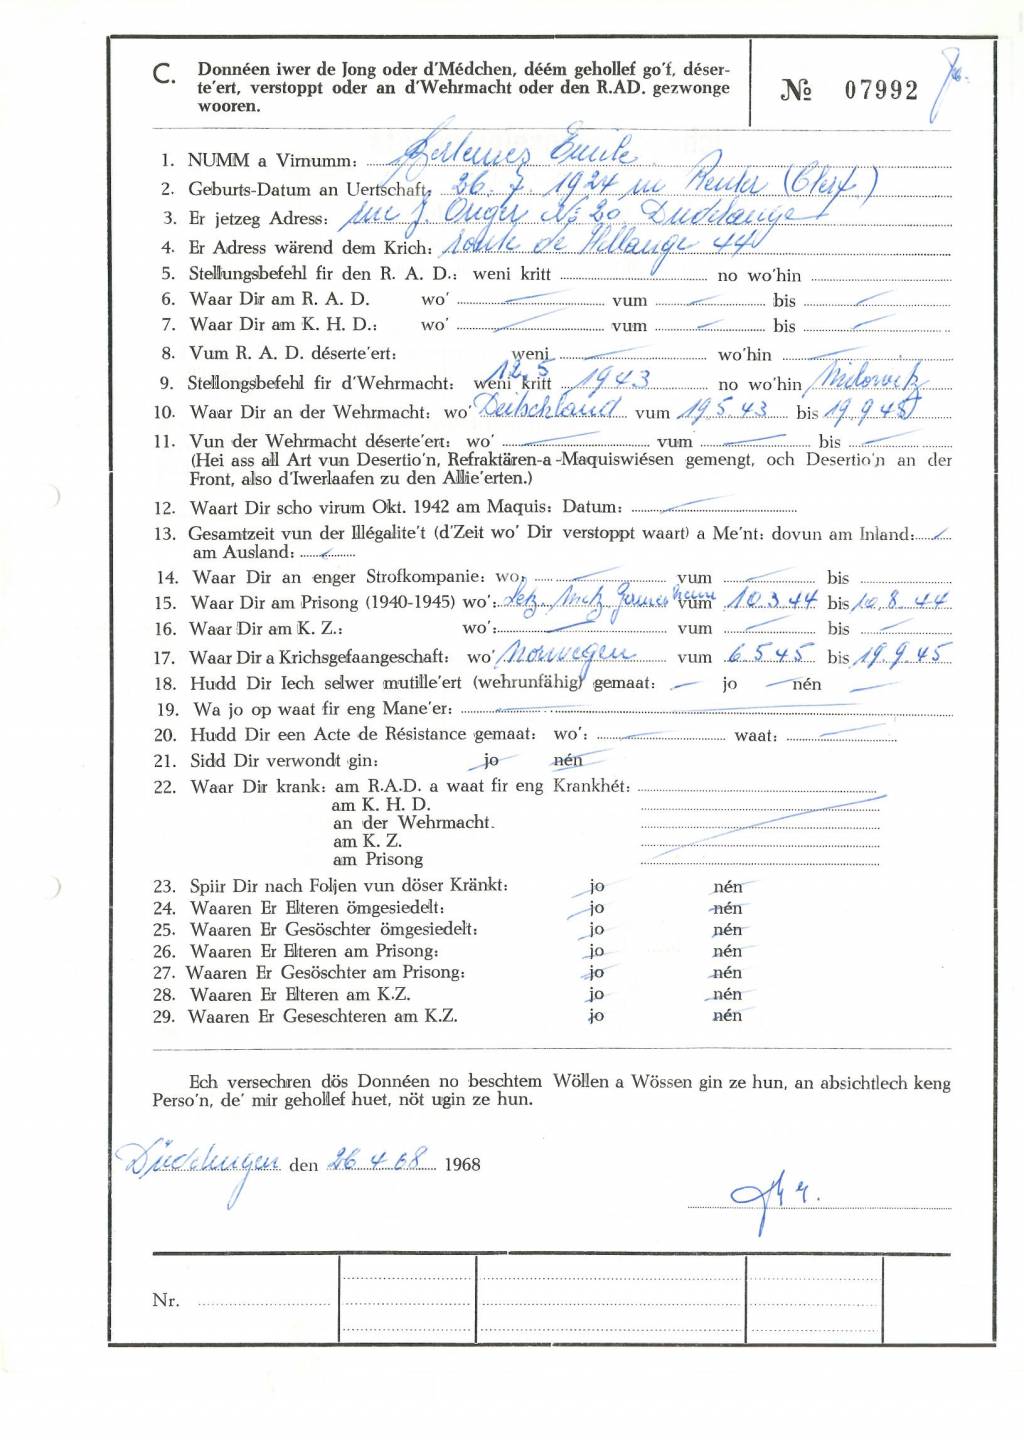 C. Donnéen iwer de Jong oder d'Médchen, déém gehollef go'f, déser-
te'ert, verstoppt oder an d'Wehrmacht oder den R.AD. gezwonge
wooren.
№ 07992
1. NUMM a Virnumm: Emile
2. Geburts-Datum an Uertschaft: 26. 7. 1924 in (Clerf)
3. Er jetzeg Adress: rue J. No 20 Dudelange
4. Er Adress wärend dem Krich: route de 44
5. Stellungsbefehl fir den R. A. D.: weni kritt no wo'hin
6. Waar Dir am R. A. D. wo' — vum — bis —
7. Waar Dir am K. H. D.: wo' — vum — bis —
8. Vum R. A. D. déserte'ert: weni — wo'hin —
9. Stellongsbefehl fir d'Wehrmacht: weni kritt 12.5 1943 no wo'hin Milowitz
10. Waar Dir an der Wehrmacht: wo' Deitschland vum 19 5 43 bis 19 9 45
11. Vun der Wehrmacht déserte'ert: wo' — vum — bis —
(Hei ass all Art vun Desertio'n, Refraktären-a-Maquiswiésen gemengt, och Desertio'n an der
Front, also d'Iwerlaafen zu den Allie'erten.)
12. Waart Dir scho virum Okt. 1942 am Maquis: Datum: —
13. Gesamtzeit vun der Illégalite't (d'Zeit wo' Dir verstoppt waart) a Me'nt: dovun am Inland: —
am Ausland: —
14. Waar Dir an enger Strofkompanie: wo: — vum — bis
15. Waar Dir am Prison̄g (1940-1945) wo': Metz vum 10.3.44 bis 10.8.44
16. Waar Dir am K. Z.: wo': — vum — bis —
17. Waar Dir a Krichsgefaangeschaft: wo' Norwegen vum 6.5.45 bis 19.9.45
18. Hudd Dir Iech selwer mutille'ert (wehrunfähig) gemaat: — jo — nén —
19. Wa jo op waat fir eng Mane'er: —
20. Hudd Dir een Acte de Résistance gemaat: wo': — waat: —
21. Sidd Dir verwondt gin: jo nén
22. Waar Dir krank: am R.A.D. a waat fir eng Krankhét:
am K. H. D.
an der Wehrmacht.
am K. Z.
am Prisong
23. Spiir Dir nach Foljen vun döser Kränkt: jo nén
24. Waaren Er Elteren ömgesiedelt: jo nén
25. Waaren Er Gesöschter ömgesiedelt: jo nén
26. Waaren Er Elteren am Prisong: jo nén
27. Waaren Er Gesöschter am Prisong: jo nén
28. Waaren Er Elteren am K.Z. jo nén
29. Waaren Er Geseschteren am K.Z. jo nén
Ech versechren dös Donnéen no beschtem Wöllen a Wössen gin ze hun, an absichtlech keng
Perso'n, de' mir gehollef huet, nöt ugin ze hun.
Düdelingen den 26 4 68 1968
Nr.